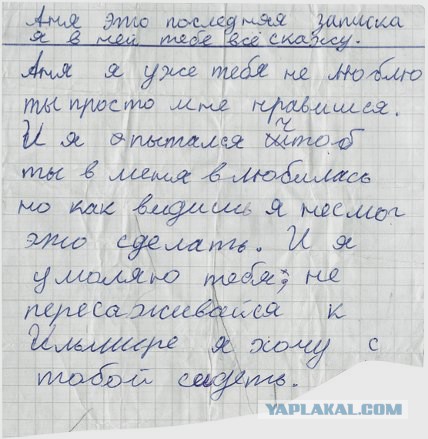 Аня это последняя записка
я в ней тебе всё скажу.
Аня я уже тебя не люблю
ты просто мне нравишся.
И я опытался чтоб
ты в меня влюбилась
но как видишь я несмог
это сделать. И я
умоляю тебя; не
пересаживайся к
Ильмире я хочу с
тобой сидеть.
YAPLAKAL.COM